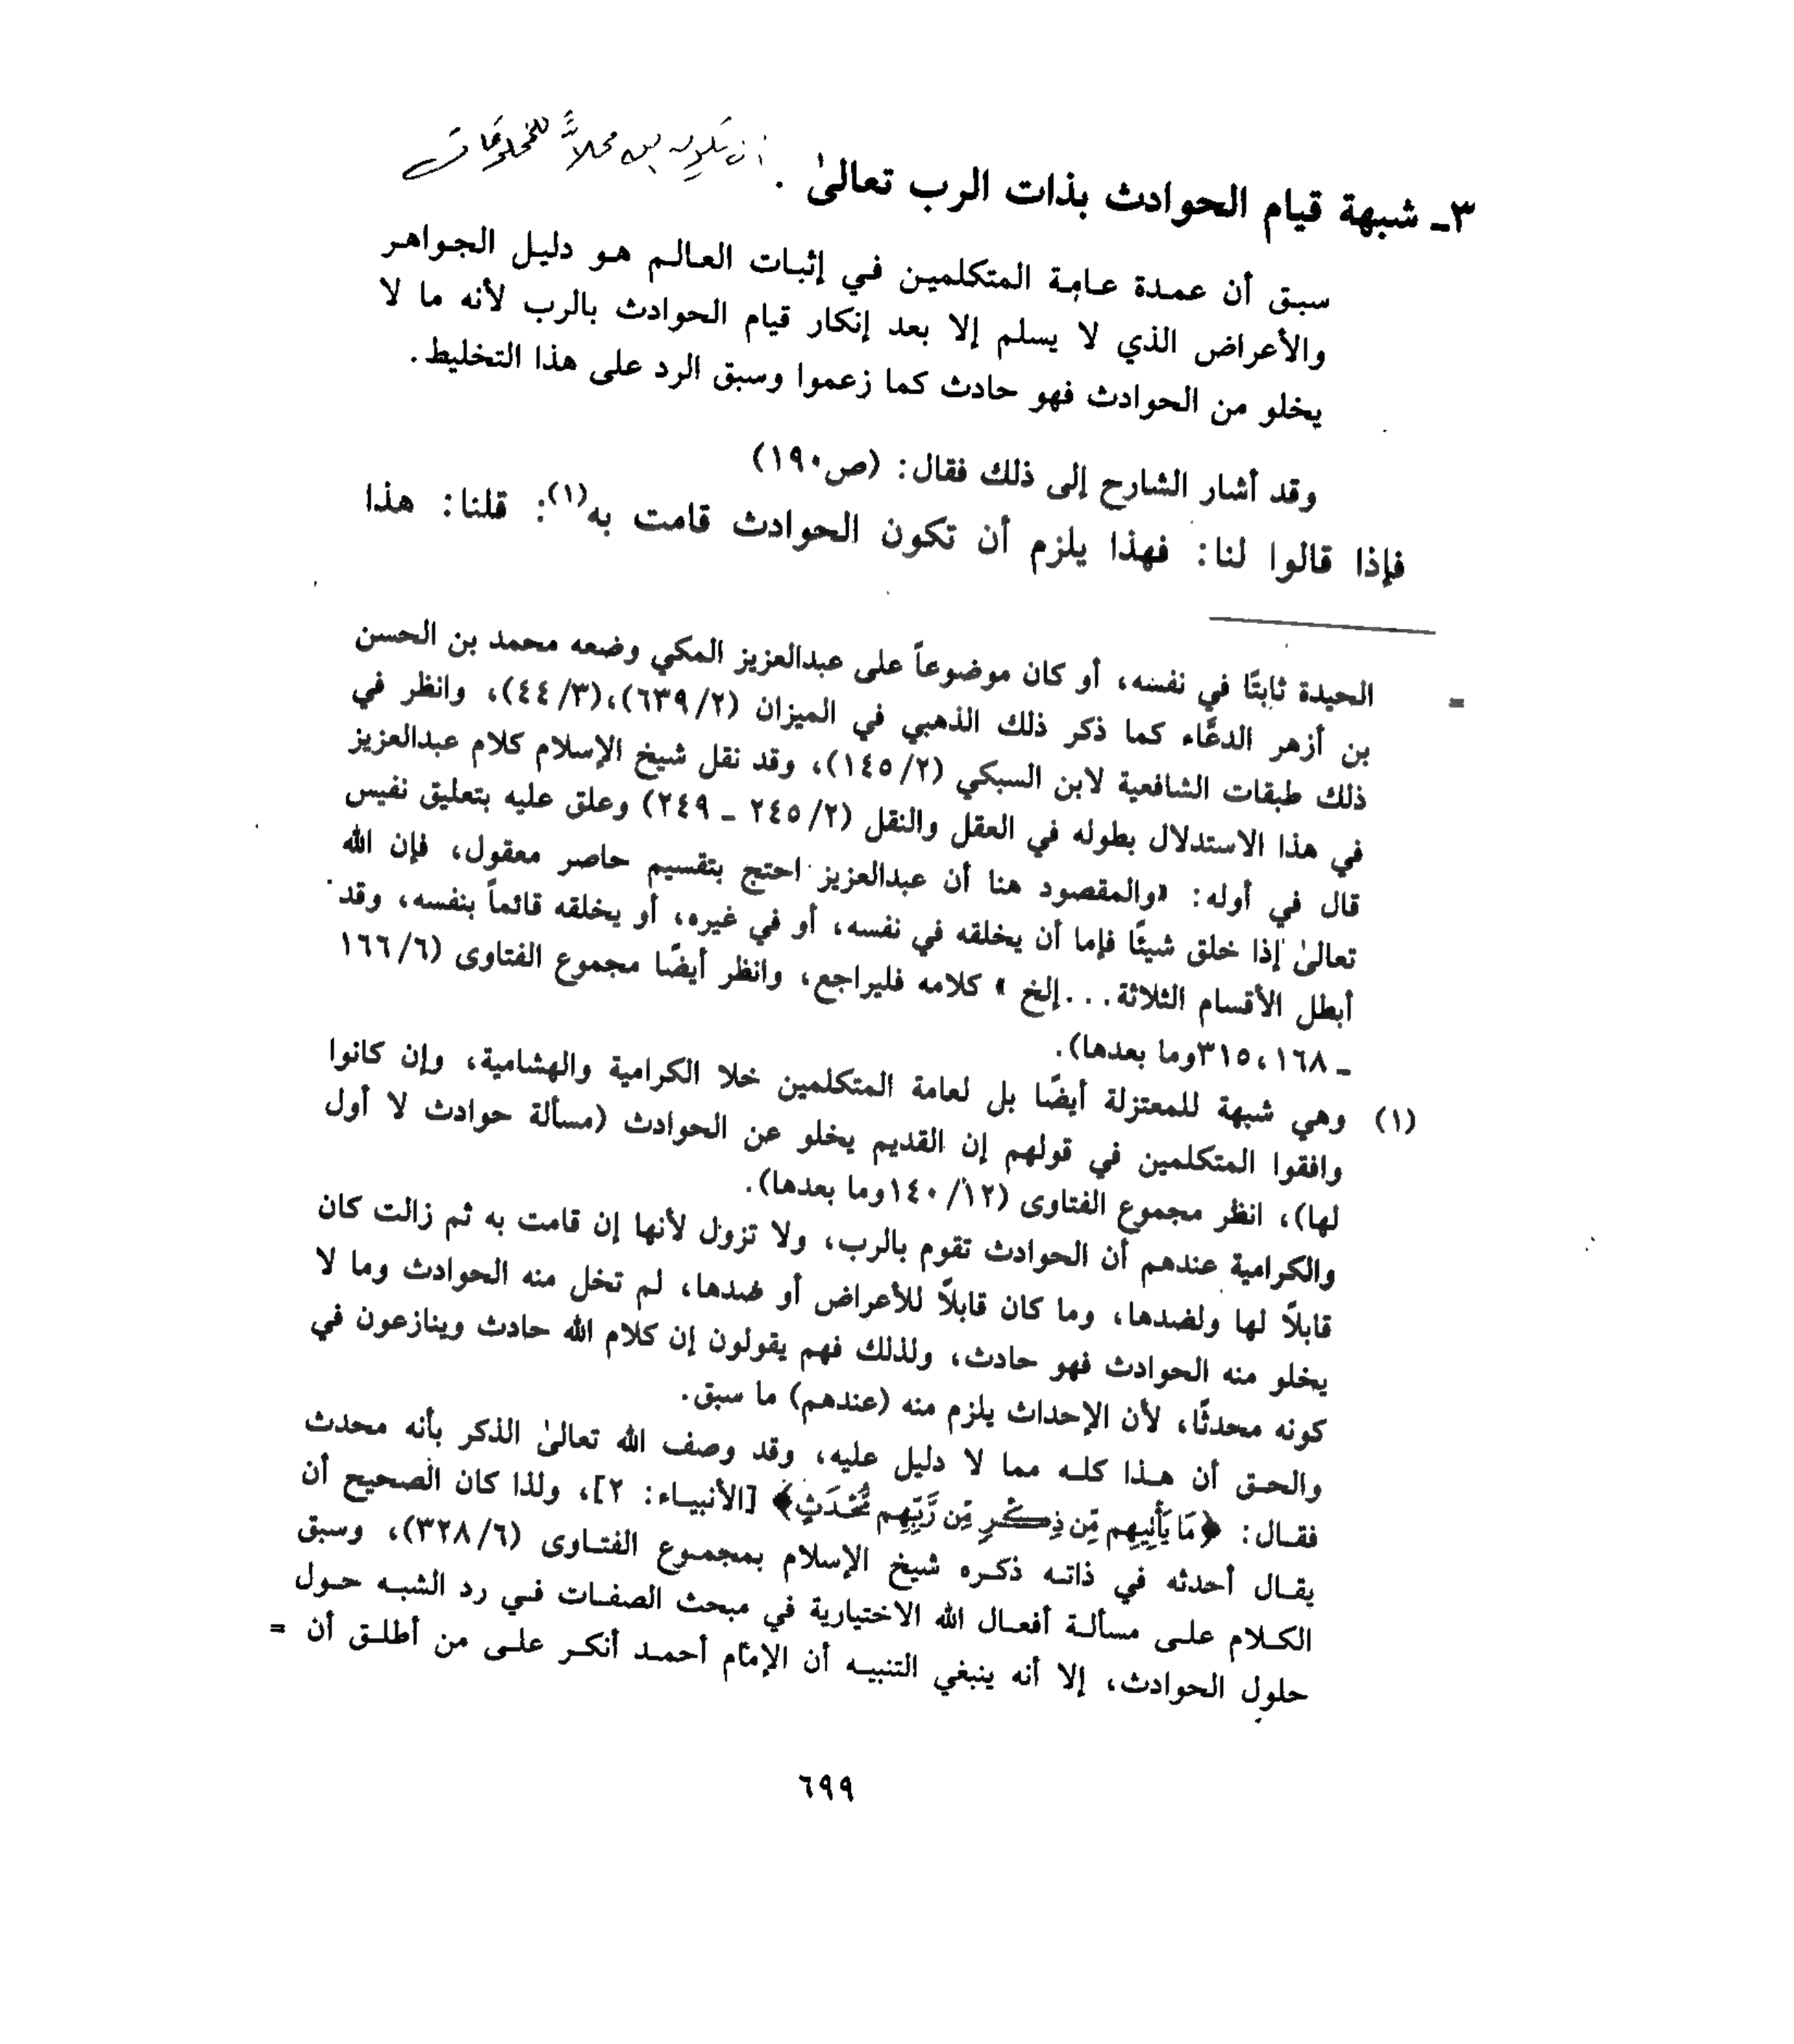 ٣ـ شبهة قيام الحوادث بذات الرب تعالىٰ . أن يكون محلاًّ للمخلوقات
سبـق أن عمـدة عـامـة المتكلميـن فـي إثبـات العـالـم هـو دليـل الجـواهـر
والأعراض الذي لا يسلم إلا بعد إنكار قيام الحوادث بالرب لأنه ما لا
يخلو من الحوادث فهو حادث كما زعموا وسبق الرد على هذا التخليط.
وقد أشار الشارح إلى ذلك فقال: (ص١٩٠)
فإذا قالوا لنا: فهذا يلزم أن تكون الحوادث قامت به(١): قلنا: هذا
= الحيدة ثابتًا في نفسه، أو كان موضوعاً على عبدالعزيز المكي وضعه محمد بن الحسن
بن أزهر الدعَّاء كما ذكر ذلك الذهبي في الميزان (٢/ ٦٣٩)،(٣/ ٤٤)، وانظر في
ذلك طبقات الشافعية لابن السبكي (٢/ ١٤٥)، وقد نقل شيخ الإسلام كلام عبدالعزيز
في هذا الاستدلال بطوله في العقل والنقل (٢/ ٢٤٥ ـ ٢٤٩) وعلق عليه بتعليق نفيس
قال في أوله: «والمقصود هنا أن عبدالعزيز احتج بتقسيم حاصر معقول، فإن الله
تعالىٰ إذا خلق شيئًا فإما أن يخلقه في نفسه، أو في غيره، أو يخلقه قائماً بنفسه، وقد
أبطل الأقسام الثلاثة. . .إلخ » كلامه فليراجع، وانظر أيضًا مجموع الفتاوى (٦/ ١٦٦
ـ ٣١٥،١٦٨وما بعدها).
(١) وهي شبهة للمعتزلة أيضًا بل لعامة المتكلمين خلا الكرامية والهشامية، وإن كانوا
وافقوا المتكلمين في قولهم إن القديم يخلو عن الحوادث (مسألة حوادث لا أول
لها)، انظر مجموع الفتاوى (١٢/ ١٤٠وما بعدها).
والكرامية عندهم أن الحوادث تقوم بالرب، ولا تزول لأنها إن قامت به ثم زالت كان
قابلاً لها ولضدها، وما كان قابلاً للأعراض أو ضدها، لم تخل منه الحوادث وما لا
يخلو منه الحوادث فهو حادث، ولذلك فهم يقولون إن كلام الله حادث وينازعون في
كونه محدثًا، لأن الإحداث يلزم منه (عندهم) ما سبق.
والحـق أن هـذا كلـه مما لا دليل عليه، وقد وصف الله تعالىٰ الذكر بأنه محدث
فقـال: ﴿مَا يَأْتِيهِم مِّن ذِكْرٍ مِّن رَّبِّهِم مُّحْدَثٍ﴾ [الأنبيـاء: ٢]، ولذا كان الصحيح أن
يقـال أحدثه في ذاتـه ذكـره شيخ الإسلام بمجمـوع الفتـاوى (٦/ ٣٢٨)، وسبق
الكـلام علـى مسألـة أفعـال الله الاختيارية في مبحث الصفـات فـي رد الشبـه حـول
حلول الحوادث، إلا أنه ينبغي التنبيـه أن الإمام أحمـد أنكـر علـى من أطلـق أن =
٦٩٩